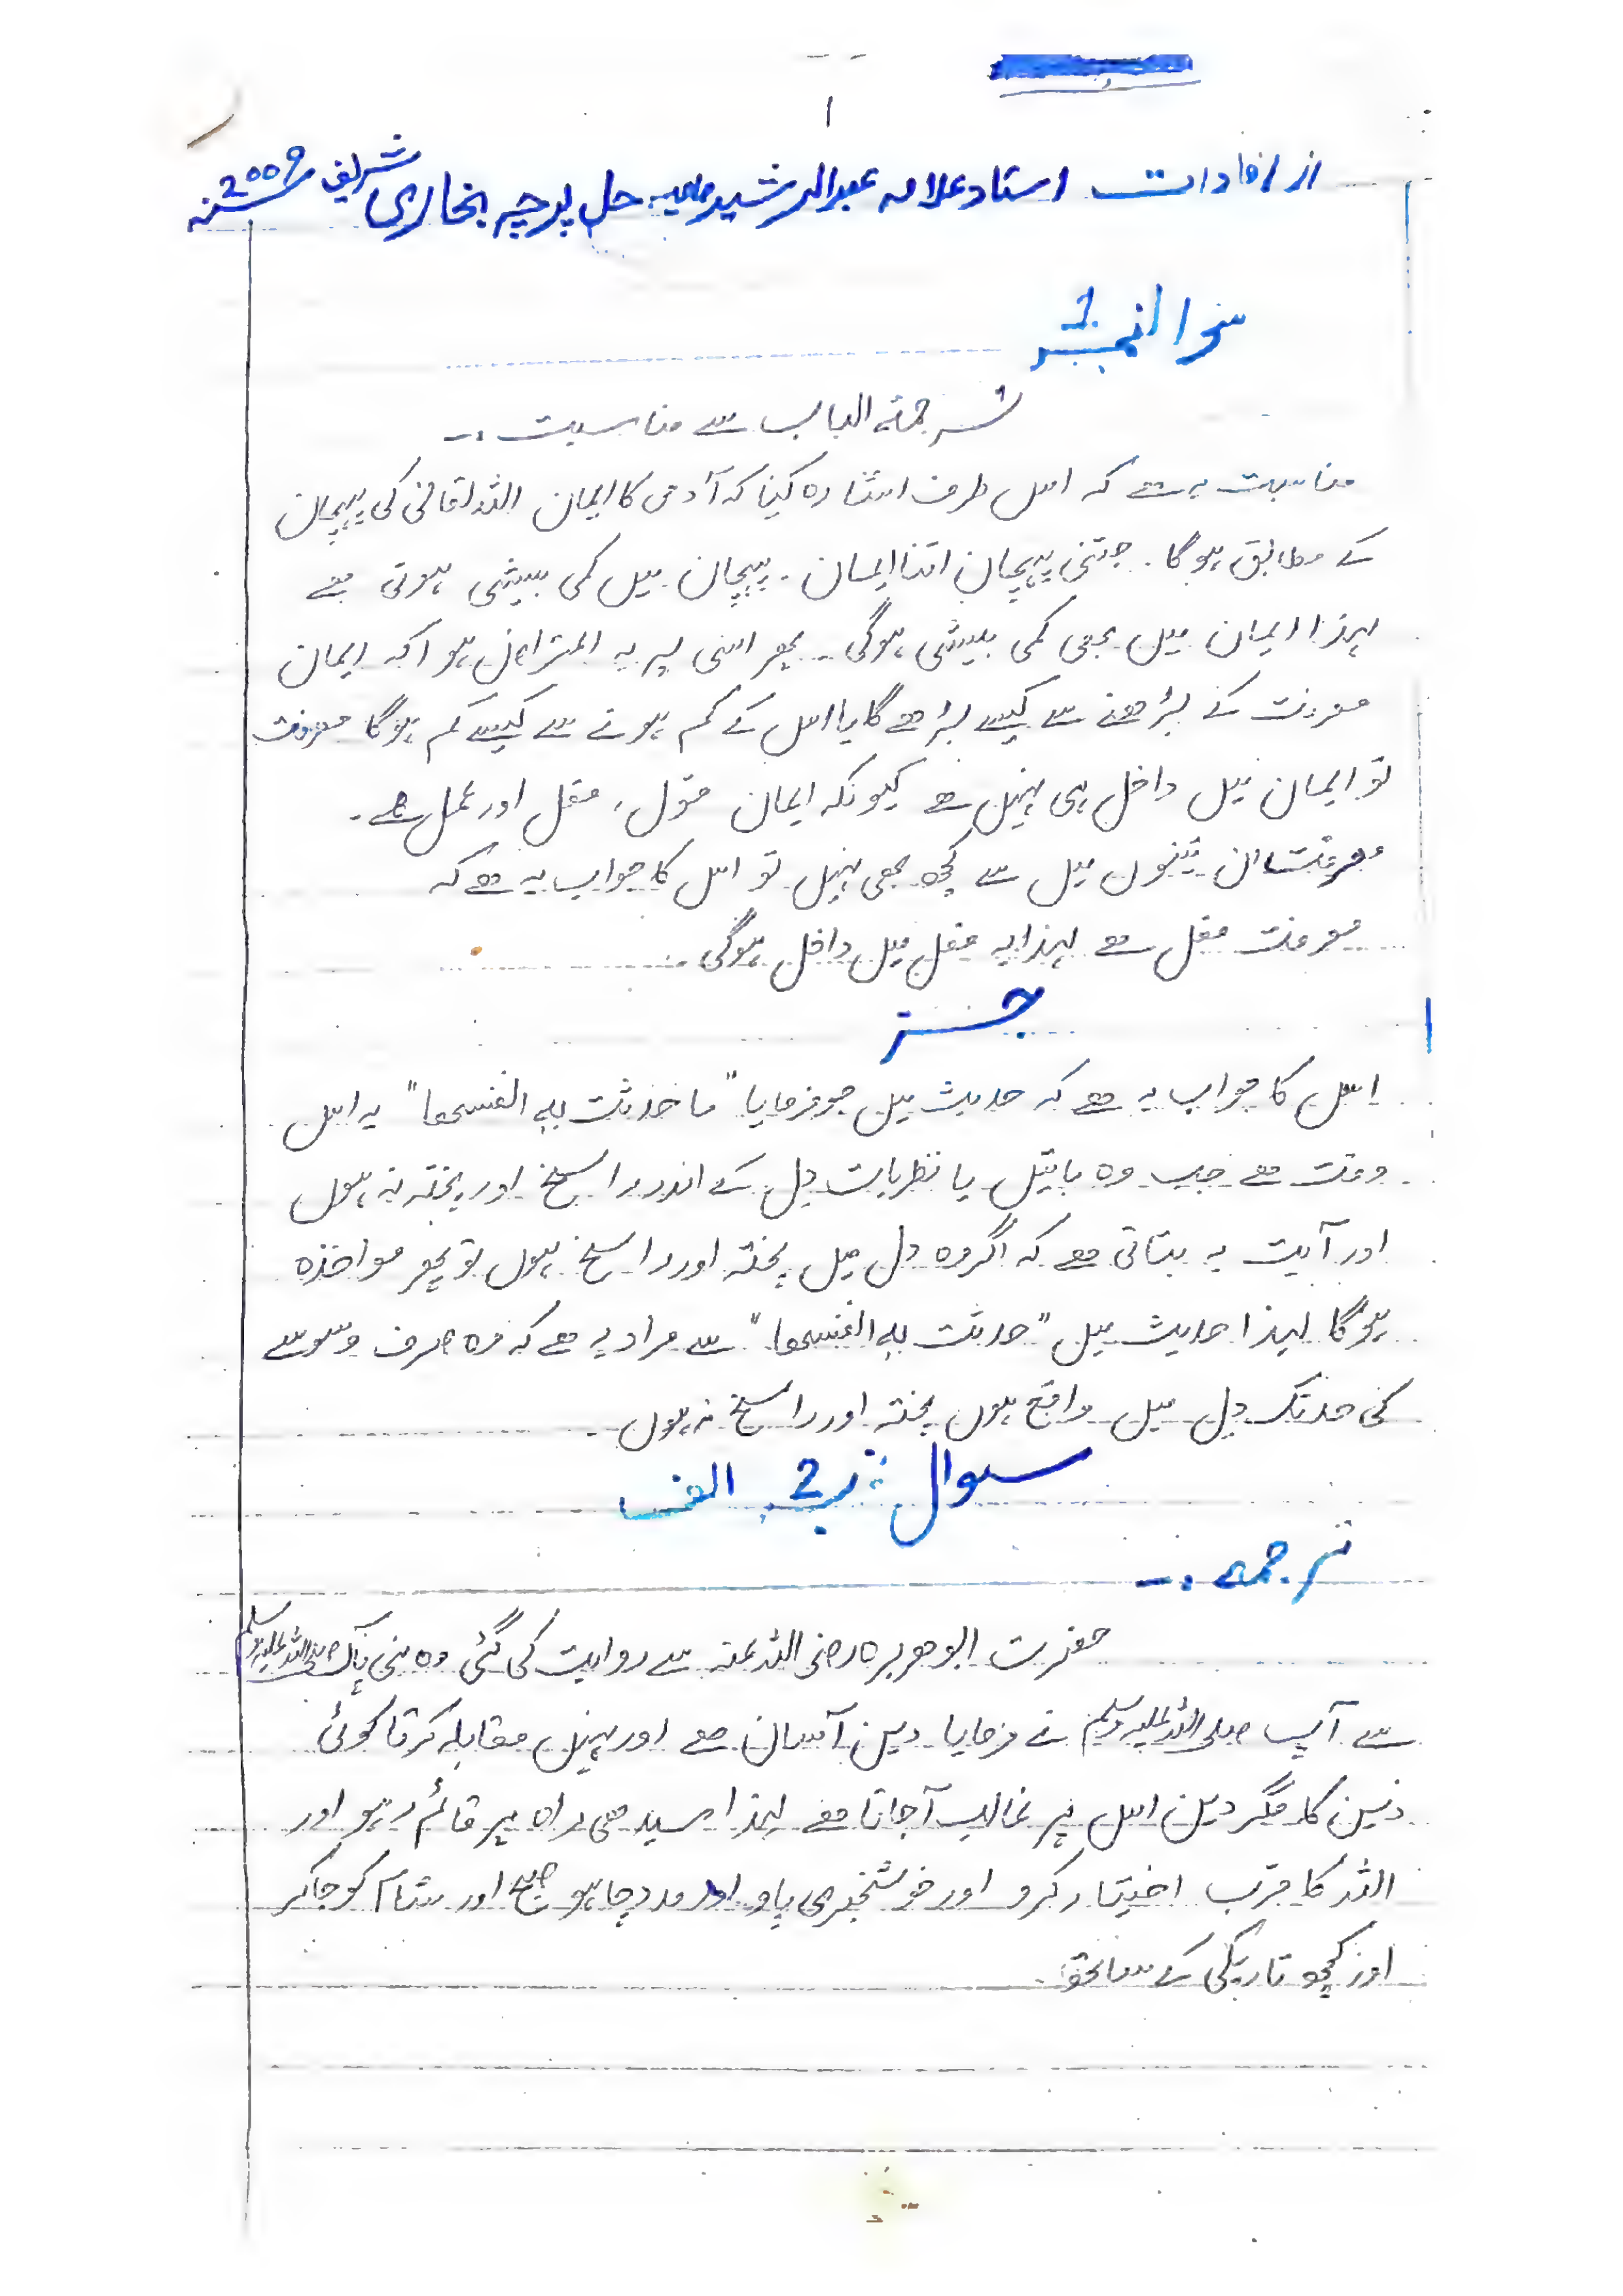 ۱
از افادات استاد علامہ عبدالرشید صاحب حل پرچہ بخاری شریف 2009 سنہ
سوالنمبر 1
ترجمۃ الباب سے مناسبت :۔
مناسبت یہ ہے کہ اس طرف اشارہ کیا کہ آدمی کا ایمان اللہ تعالیٰ کی پہچان
کے مطابق ہو گا۔ جتنی پہچان اتنا ایمان۔ پہچان میں کمی بیشی ہوتی ہے
لہذا ایمان میں بھی کمی بیشی ہوگی۔ پھر اسی پر یہ اعتراض ہوا کہ ایمان
معرفت کے بڑھنے سے کیسے بڑھے گا یا اس کے کم ہونے سے کیسے کم ہوگا معرفت
تو ایمان میں داخل ہی نہیں ہے کیونکہ ایمان قول، فعل اور عمل ہے۔
معرفت ان تینوں میں سے کچھ بھی نہیں تو اس کا جواب یہ ہے کہ
معرفت فعل ہے لہذا یہ فعل میں داخل ہوگی۔
جز
اس کا جواب یہ ہے کہ حدیث میں جو فرمایا "ما حدثت بہ انفسھا" یہ اس
وقت ہے جب وہ باتیں یا نظریات دل کے اندر راسخ اور پختہ نہ ہوں
اور آیت یہ بتاتی ہے کہ اگر وہ دل میں پختہ اور راسخ ہوں تو پھر مواخذہ
ہوگا لہذا حدیث میں "حدثت بہ انفسھا" سے مراد یہ ہے کہ وہ صرف وسوسے
کی حد تک دل میں واقع ہوں پختہ اور راسخ نہ ہوں۔
سوال نمبر 2 الف
ترجمہ :۔
حضرت ابوھریرہ رضی اللہ عنہ سے روایت کی گئی وہ نبی پاک صلی اللہ علیہ وسلم
سے آپ صلی اللہ علیہ وسلم نے فرمایا دین آسان ہے اور نہیں مقابلہ کرتا کوئی
دین کا مگر دین اس پر غالب آجاتا ہے لہذا سیدھی راہ پر قائم رہو اور
اللہ کا قرب اختیار کرو اور خوشخبری پاو اور مدد چاہو صبح اور شام کو جا کر
اور کچھ تاریکی کے ساتھ۔